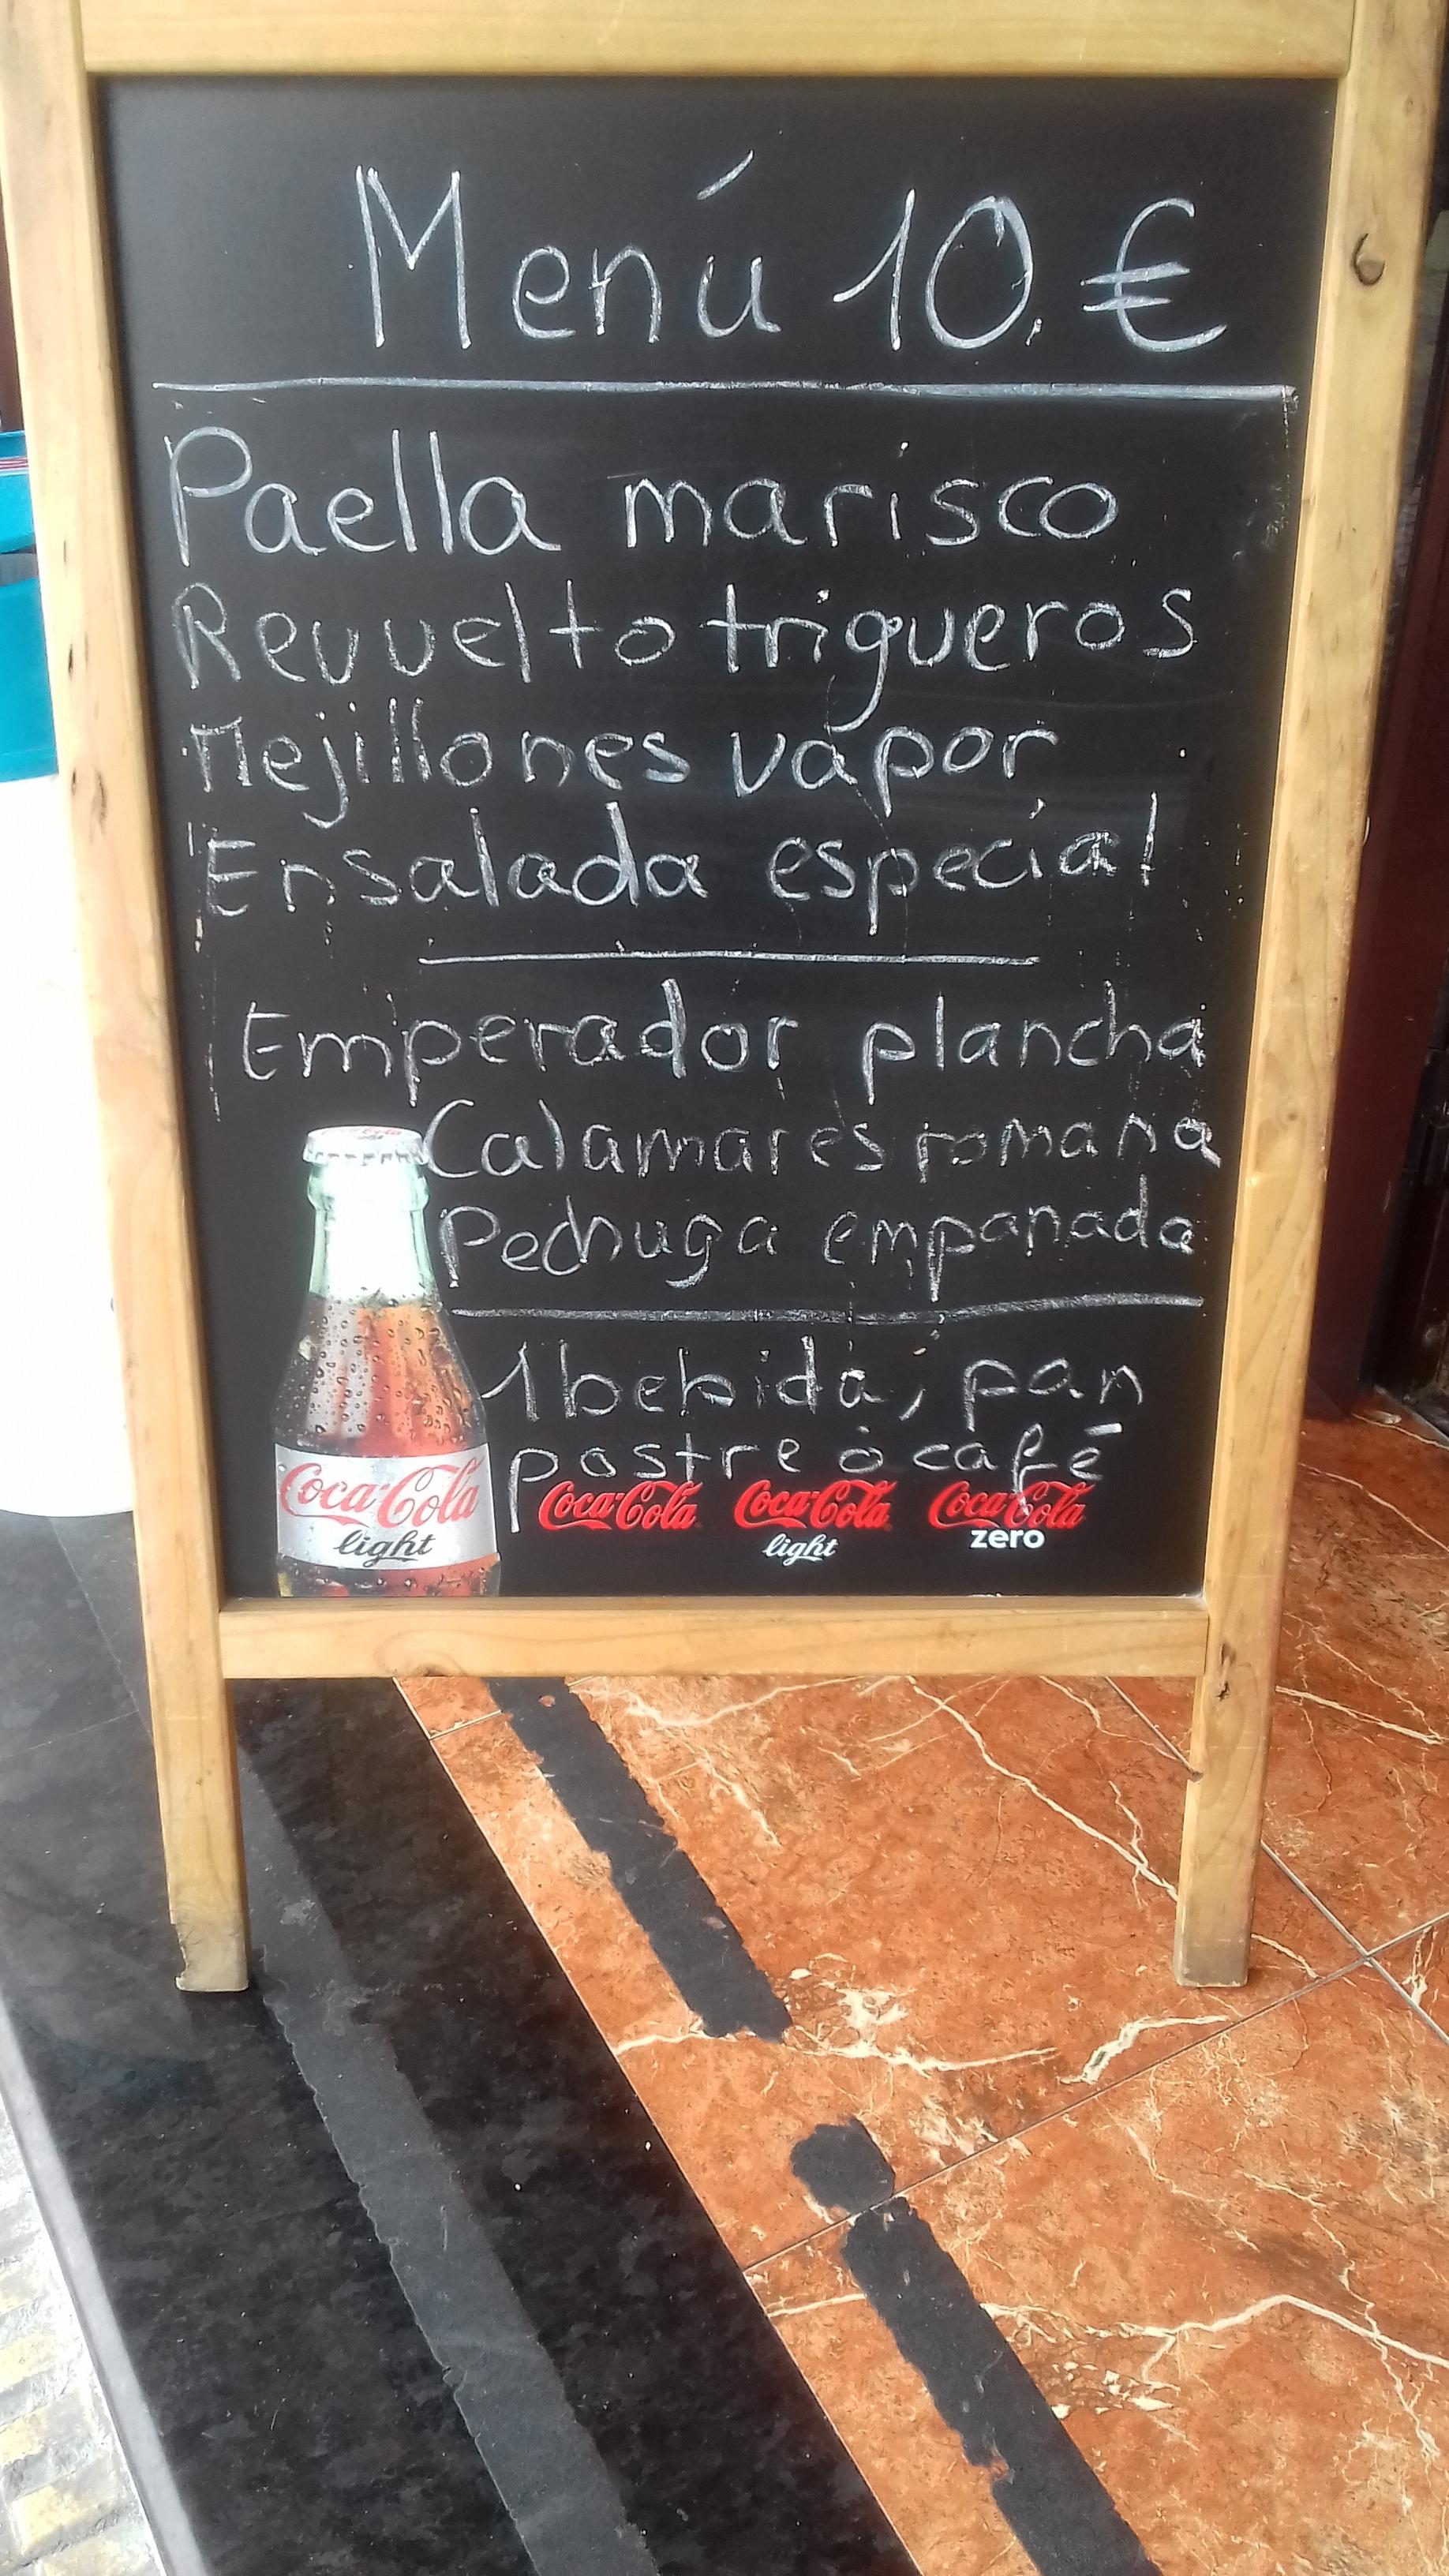 Menú 10.€
Paella marisco
Revuelto trigueros
Mejillones vapor
Ensalada especial
Emperador plancha
Calamares romana
Pechuga empanada
1 bebida, pan
postre ó café
Coca-Cola Coca-Cola Coca-Cola
light zero
Coca-Cola
light